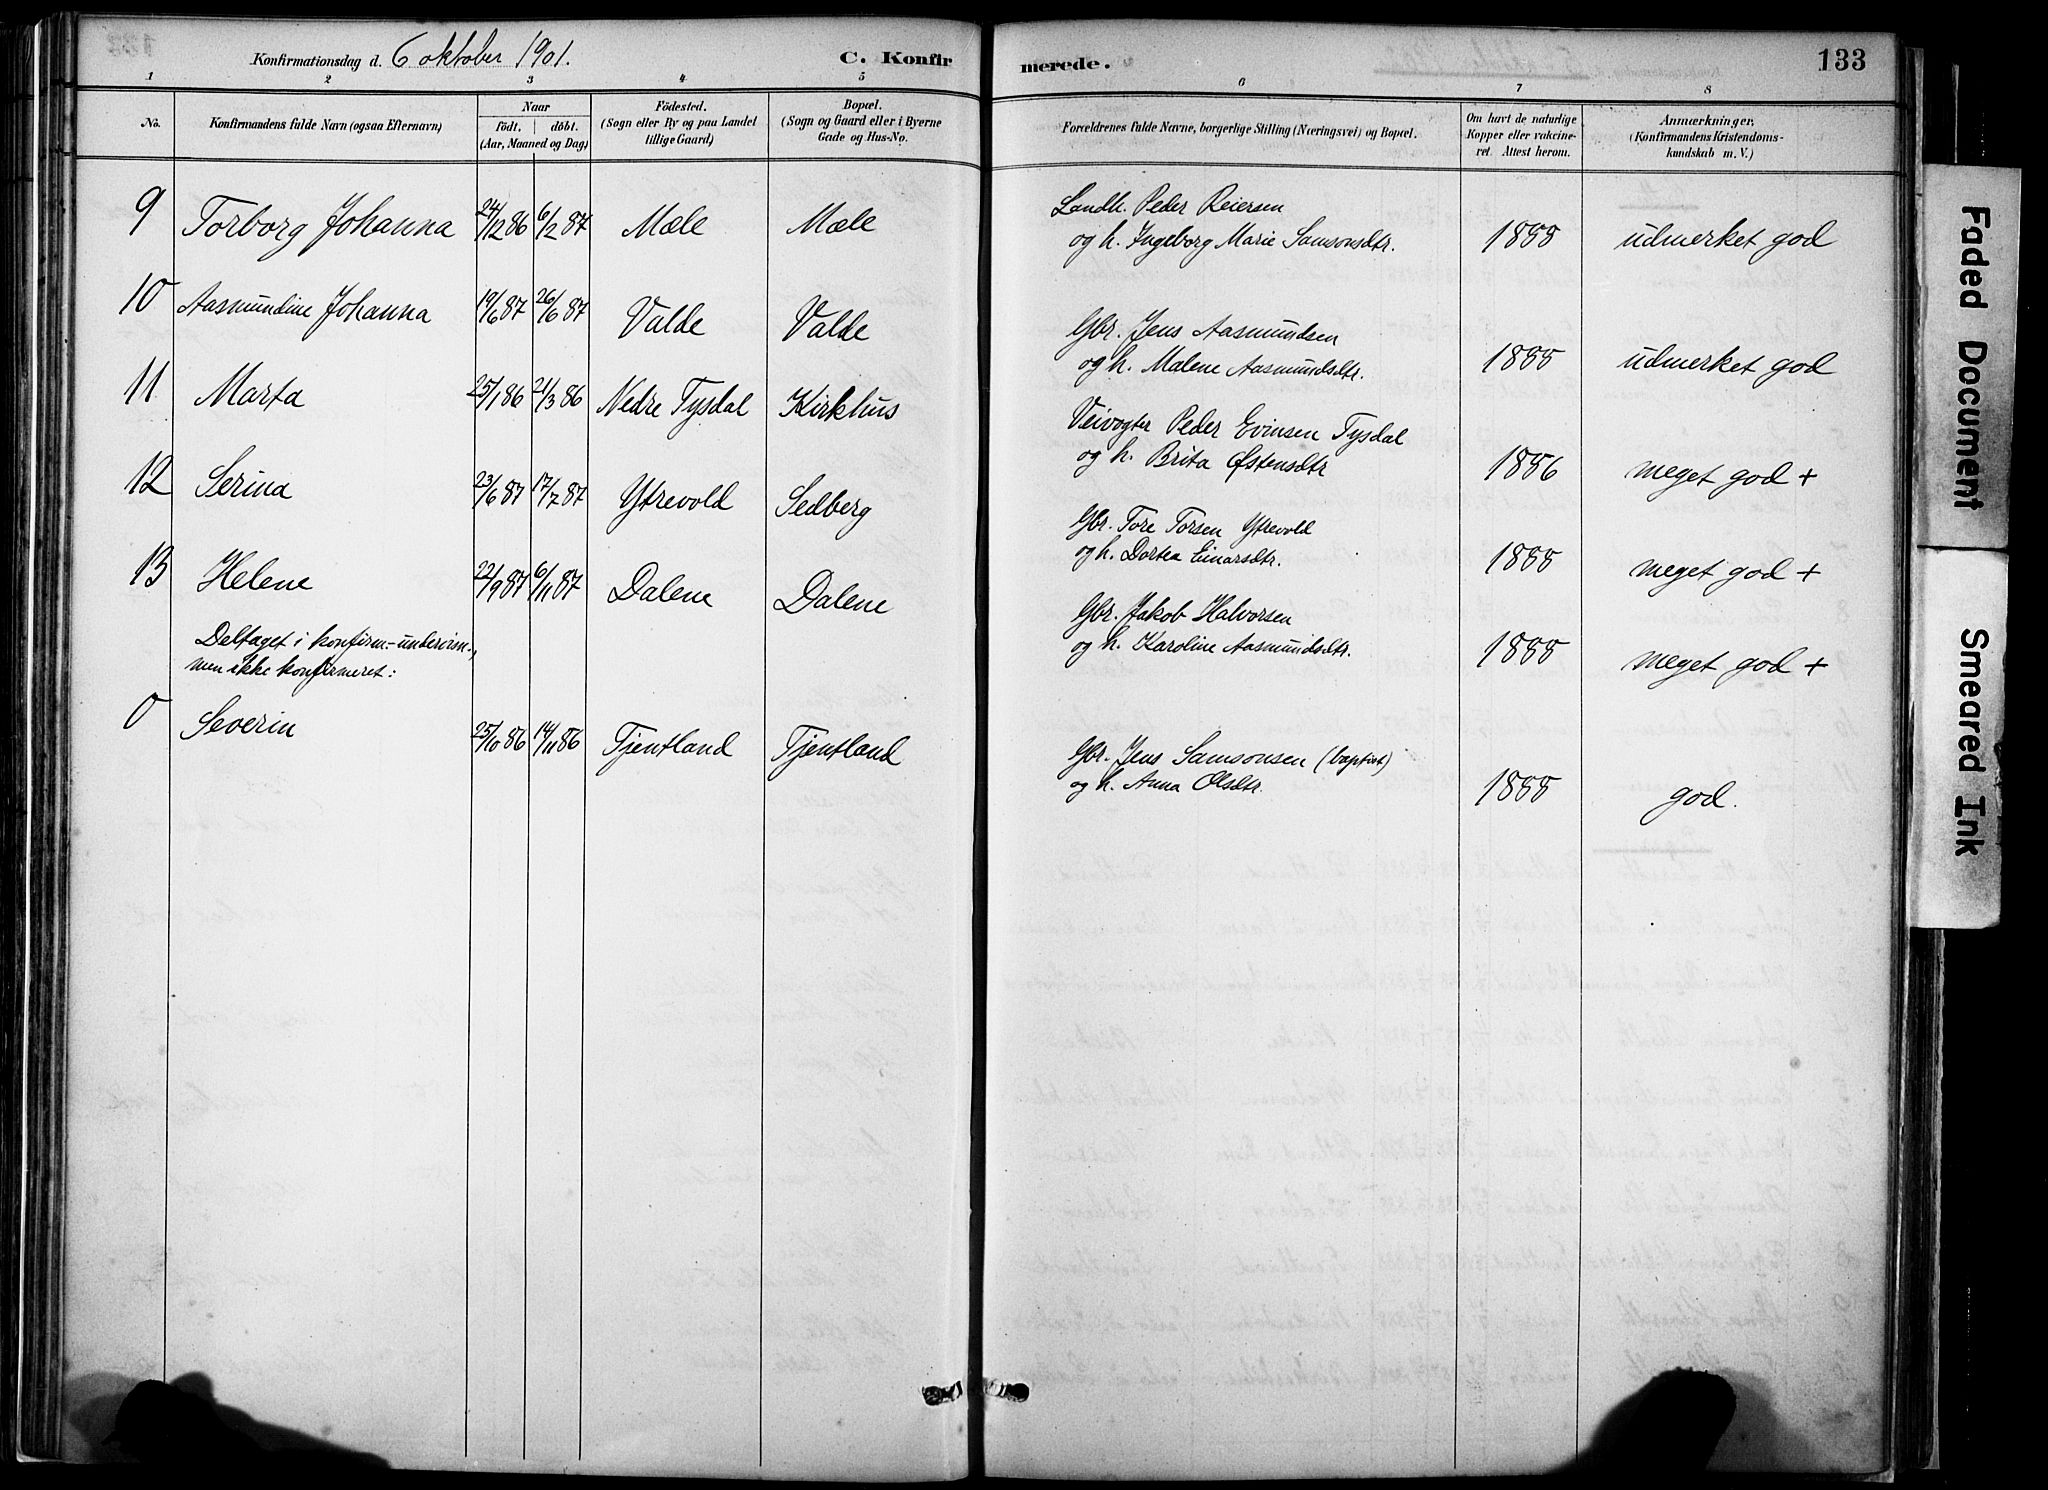 Konfirmationsdag d. 6 oktober 1901. C. Konfirmerede. 133
1 2 3 4 5 6 7 8
No.
Konfirmandens fulde Navn (ogsaa Efternavn)
Naar
födt. | döbt.
(Aar, Maaned og Dag)
Födested.
(Sogn eller By og paa Landet
tillige Gaard)
Bopæl.
(Sogn og Gaard eller i Byerne
Gade og Hus-No.
Forældrenes fulde Navne, borgerlige Stilling (Næringsvei) og Bopæl.
Om havt de naturlige
Kopper eller vakcine-
ret. Attest herom.
Anmærkninger,
(Konfirmandens Kristendoms-
kundskab m. V.)
9 Torborg Johanna 24/12 86 6/2 87 Mæle Mæle
Landh. Peder Reiersen
og h. Ingeborg Marie Samsonsdtr. 1888 udmerket god
10 Aasmundine Johanna 19/6 87 26/6 87 Valde Valde
Gbr. Jens Aasmundsen
og h. Malene Aasmundsdtr. 1888 udmerket god
11 Marta 25/1 86 21/3 86 Nedre Tysdal Kirkhus
Veivogter Peder Evinsen Tysdal
og h. Brita Østensdtr 1886 meget god +
12 Serina 23/6 87 17/7 87 Ytrevold Sedberg
Gbr. Tore Torsen Ytrevold
og h. Dortea Einarsdtr. 1888 meget god +
13 Helene 22/9 87 6/11 87 Dalene Dalene
Gbr. Jakob Halvorsen
og h. Karoline Aasmundsdtr. 1888 meget god +
Deltaget i konfirm.-undervisn.,
men ikke konfirmeret:
0 Severin 25/10 86 14/11 86 Tjentland Tjentland
Gbr. Jens Samsonsen (baptist)
og h. Anna Olsdtr. 1888 god.
Faded Document
Smeared Ink